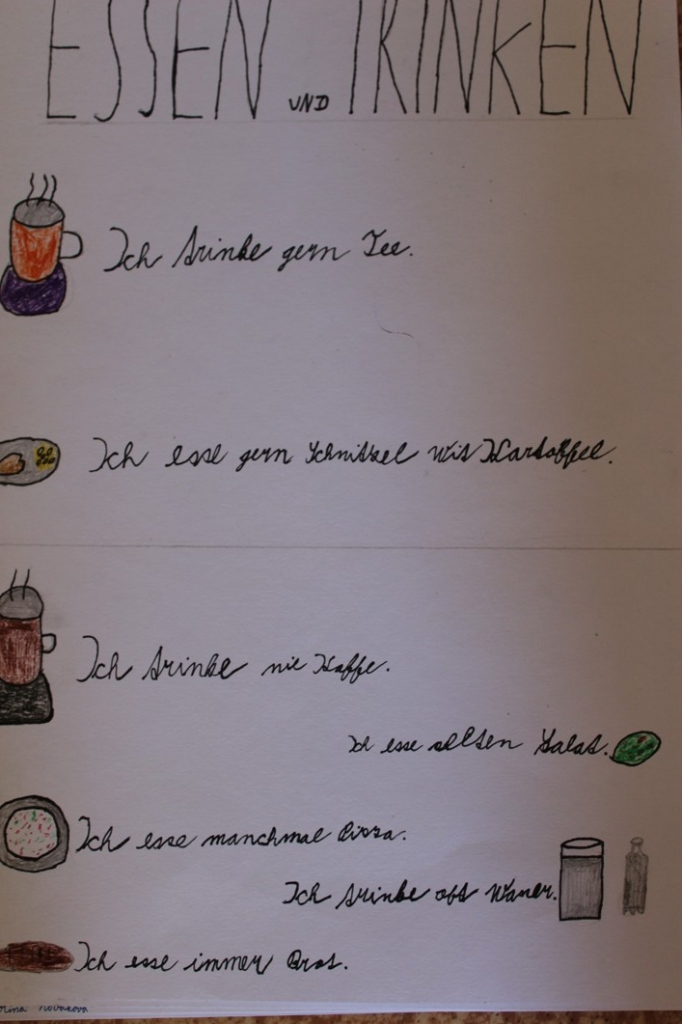 ESSEN UND TRINKEN
Ich trinke gern Tee.
Ich esse gern Schnitzel mit Kartoffel.
Ich trinke nie Kaffe.
Ich esse selten Salat.
Ich esse manchmal Pizza.
Ich trinke oft Wasser.
Ich esse immer Brot.